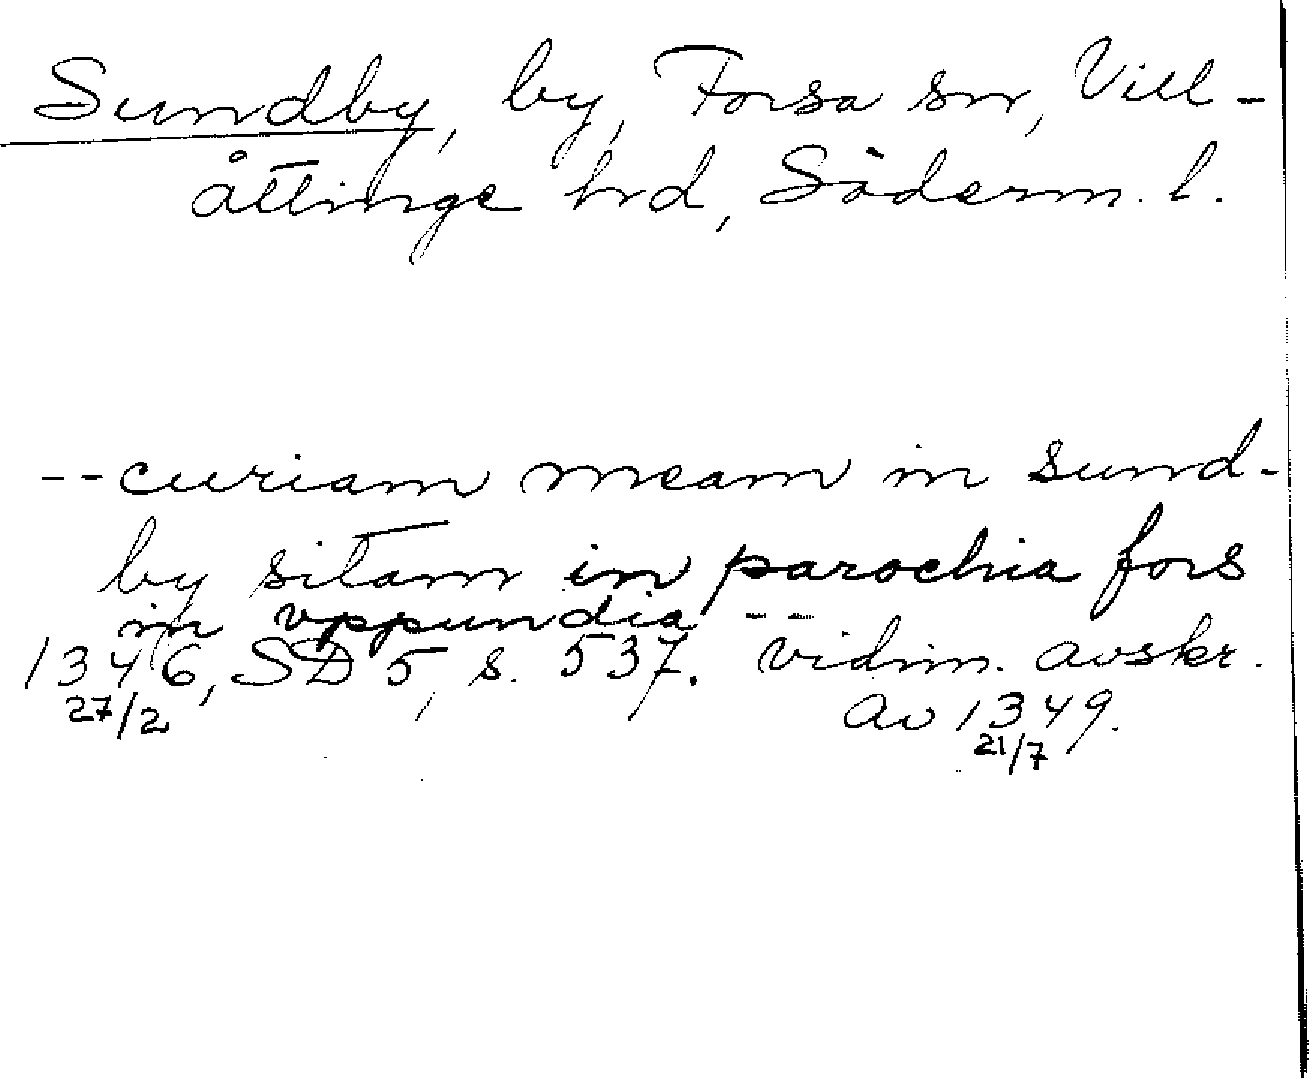 Sundby, by, Forsa sn, Vill-
åttinge hd, Söderm. l.
--curiam meam in sund-
by sitam in parochia fors
in vppundia --
1346, SD 5, s. 537. vidim. avskr.
27/2
av 1349.
21/7